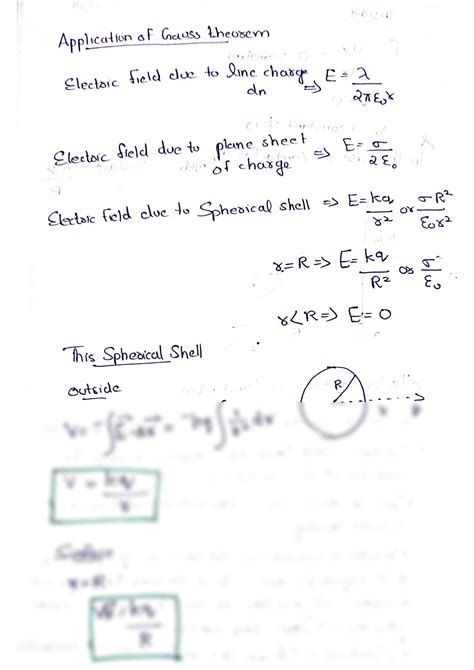 Application of Gauss theorem
Electric field due to line charge ⇒ E = λ / 2πε₀r
dn
Electric field due to plane sheet of charge ⇒ E = σ / 2ε₀
Electric field due to Spherical shell ⇒ E = kq / r² or σR² / ε₀r²
r = R ⇒ E = kq / R² or σ / ε₀
r < R ⇒ E = 0
This Spherical Shell
outside
R
V = kq / r
Surface
r = R